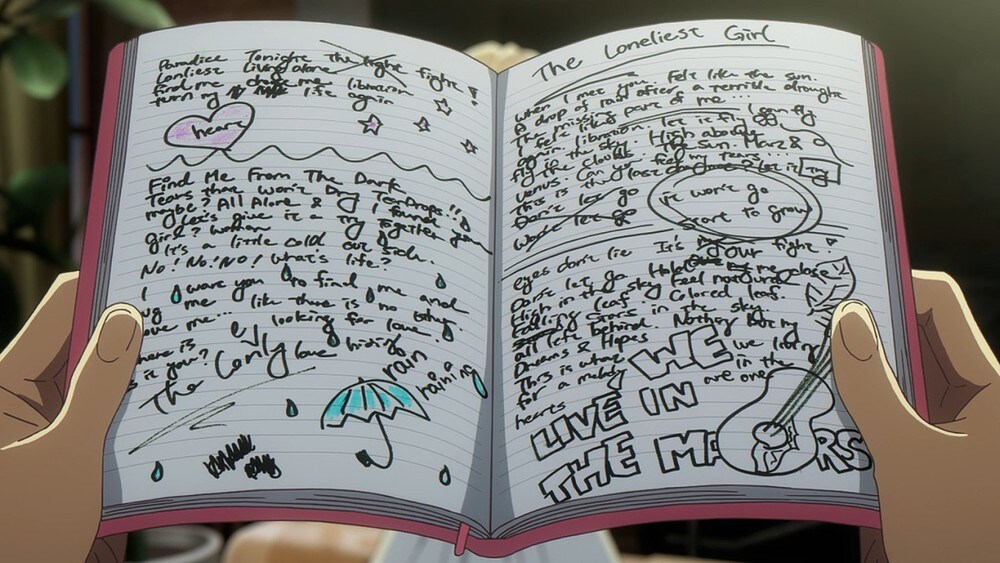 Paradice Tonight the light fight!
Lonliest Living alone
find me change me libration
turn my life again
heart
Find Me From The Dark
Tears that won't Dry TearDrops!!
maybe? All Alone & I found you
girl? Let's give it a try Together
woman
It's a little cold out side.
No! No! No! What's life?
I want you to find me and
me like there is no thing
ove me... looking for love
here is
is it your?
The Lonly love hiding
rain
raining
The Loneliest Girl
When I met you. Felt like the sun.
A drop of rain after a terrible drought
The missing part of me...
I feel like flying I can fly
again. libration. let it fly
fly in the sky. High above
the clouds. The sun. Marz &
Venus. Can you feel my Tears...
This is the last let it Try
Don't let go
Won't let go
it won't go
start to grow
eyes don't lie It's our fight
Don't let go Hold me close
High in the sky Feel
Falling leaf. Colored leaf.
Stars in the sky
all left behind. Nothing but my
Dreams & Hopes
This is what WE we living
for a melody in the
hearts are one
WE
LIVE IN
THE MARS